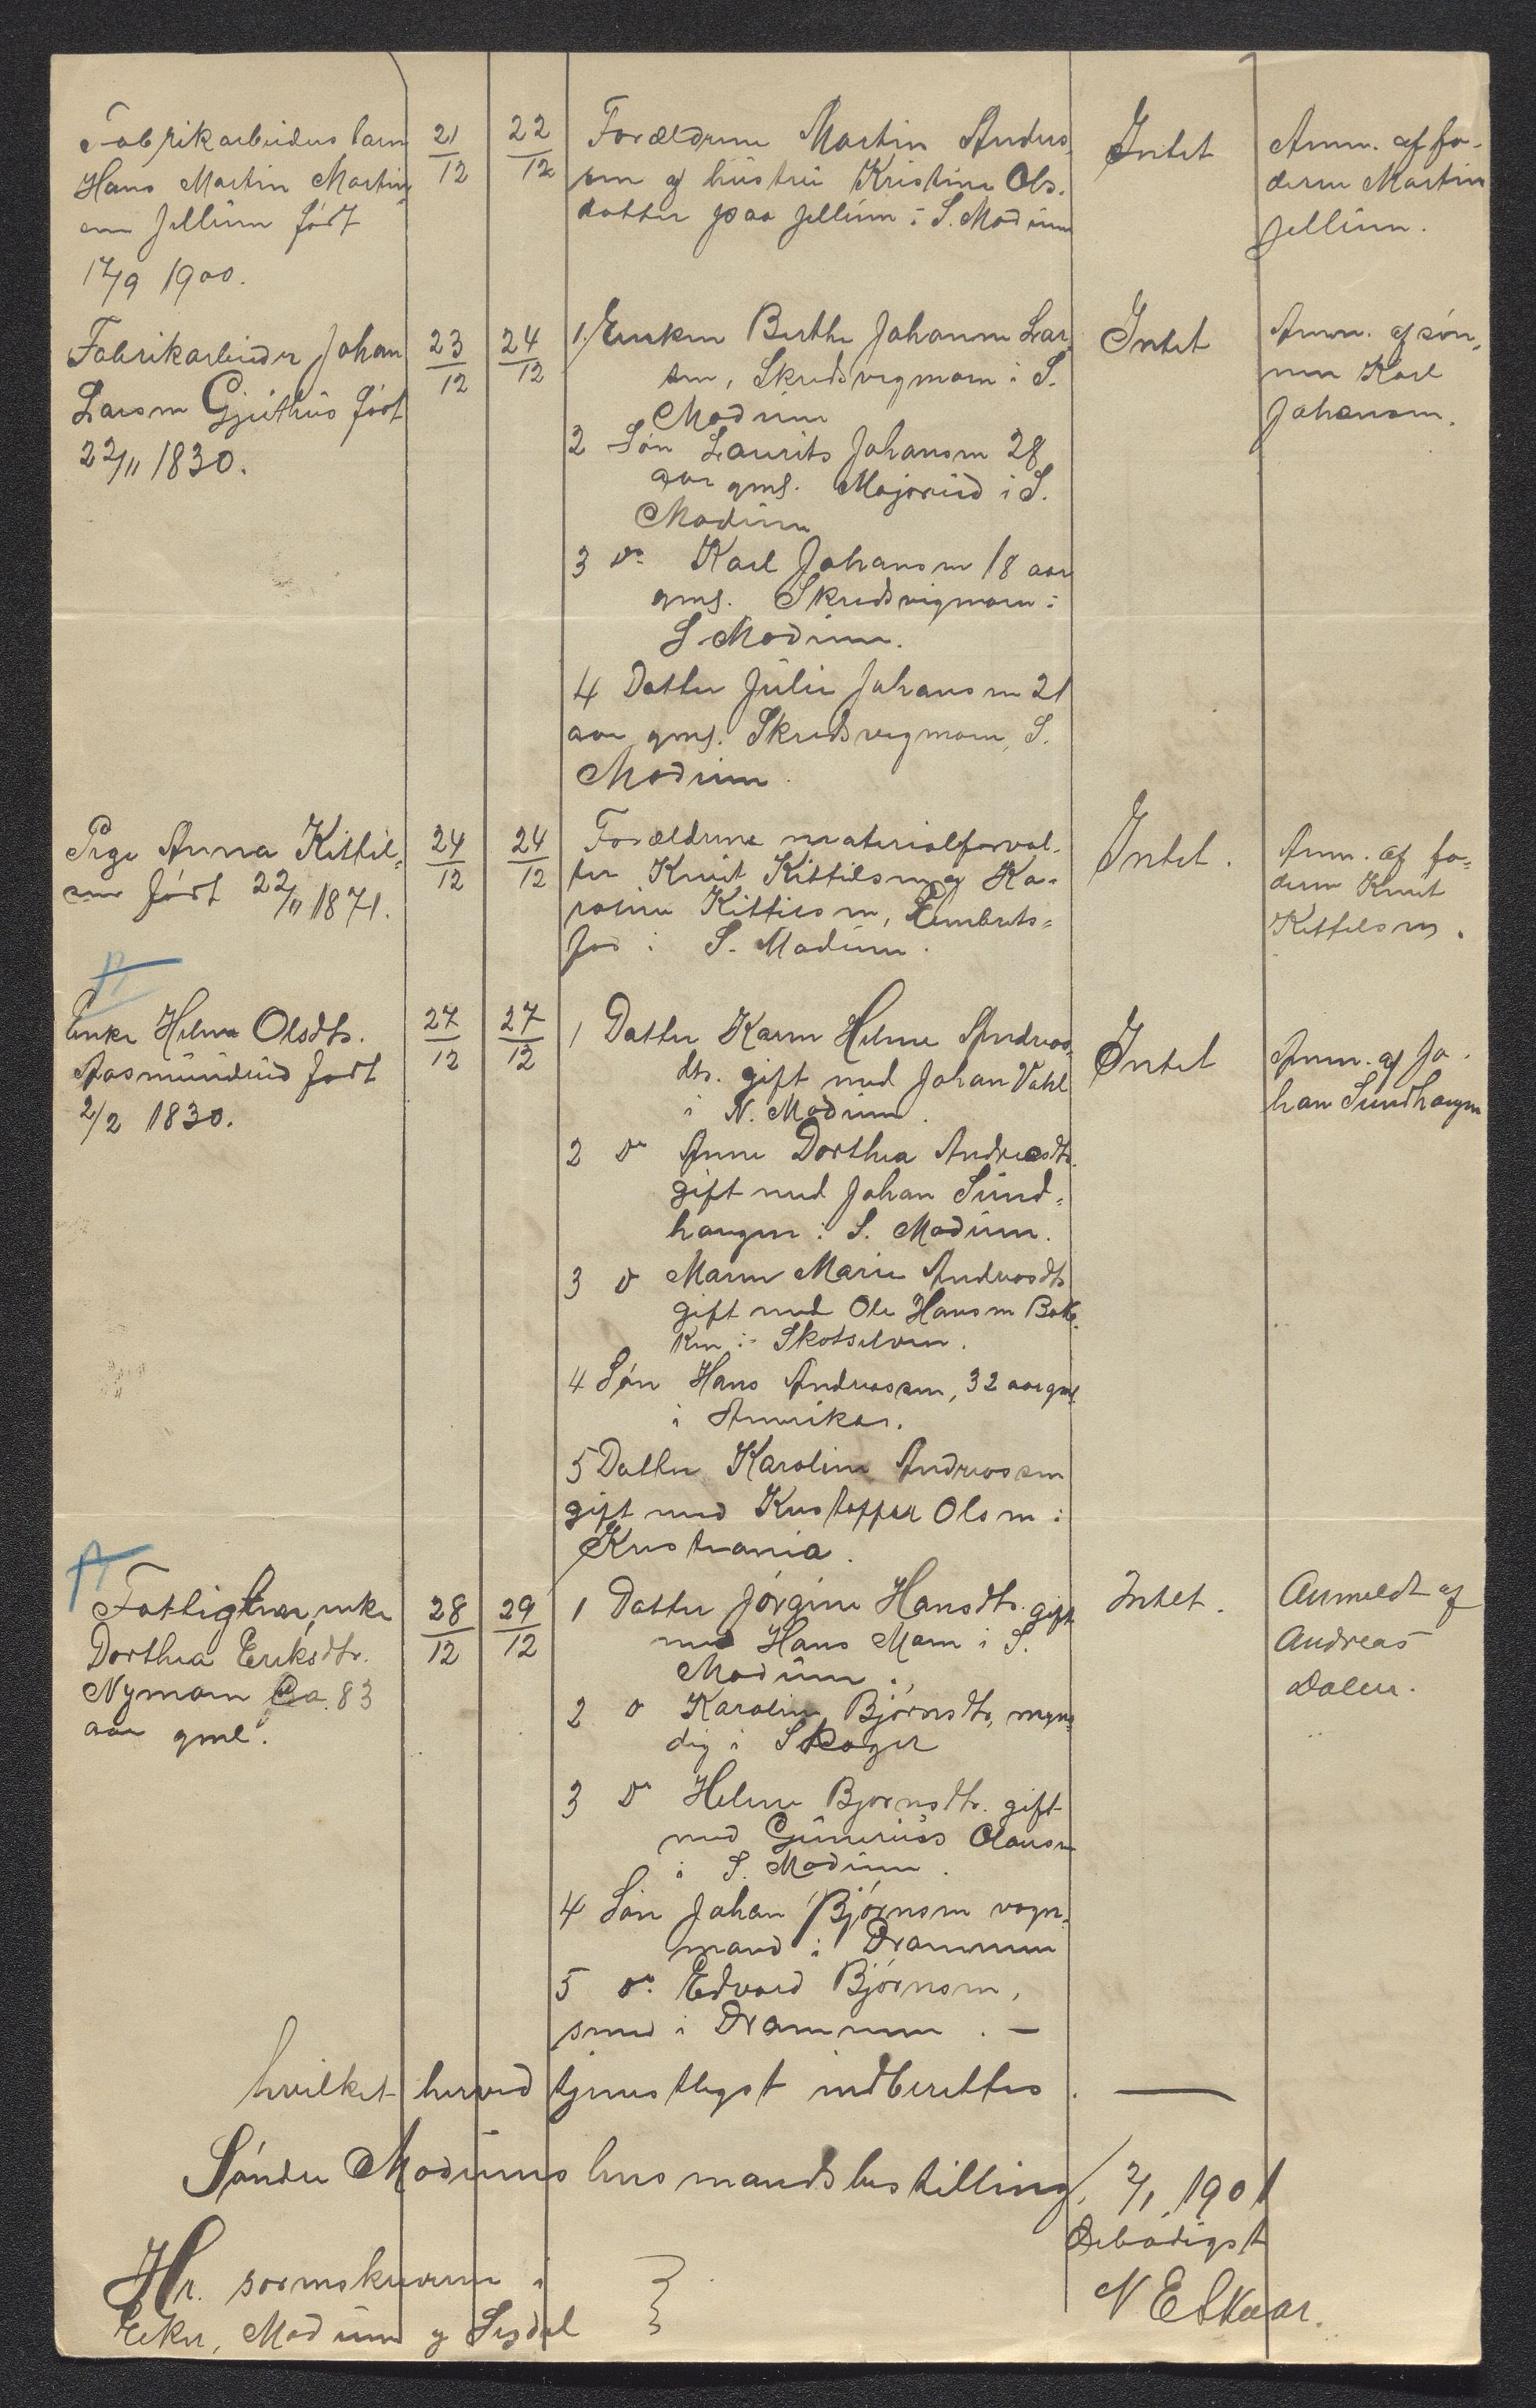 Fabrikarbeiders barn
Hans Martin Martin-
sen Jellum født
17/9 1900.
21/12
22/12
Forældrene Martin Anders-
sen og hustru Kristine Ols-
datter paa Jellum i S. Modum
Intet
Anm. af fa-
deren Martin
Jellum.
Fabrikarbeider Johan
Larsen Gjethus født
22/11 1830.
23/12
24/12
1. Enken Berthe Johanne Lar-
sen, Skredsvigmoen i S.
Modum
2 Søn Laurits Johansen 28
aar gml. Majorud i S.
Modum
3 do Karl Johansen 18 aar
gml. Skredsvigmoen i
S Modum.
4 Datter Julie Johansen 21
aar gml. Skredsvigmoen, S.
Modum.
Intet
Anm. af søn-
nen Karl
Johansen.
Pige Anna Kittil-
sen født 22/11 1871.
24/12
24/12
Forældrene materialforval-
ter Knut Kittilsen og Ka-
roline Kittilsen, Embrets-
fos i S. Modum.
Intet.
Anm. af fa-
deren Knut
Kittilsen.
Enke Helene Olsdtr.
Aasmundrud født
2/2 1830.
27/12
27/12
1 Datter Karen Helene Andreas-
dtr. gift med Johan Vahl
i N. Modum.
2 do Anne Dorthea Andreasdtr.
gift med Johan Sund-
haugen i S. Modum.
3 do Maren Marie Andreasdtr
gift med Ole Hansen Bak-
ken i Skotselven.
4 Søn Hans Andreassen, 32 aar gml.
i Amerika.
5 Datter Karoline Andreassen
gift med Kristoffer Olsen i
Kristiania.
Intet
Anm. af Jo-
han Sundhaugen
Fattiglem, enke
Dorthea Eriksdtr.
Nymoen Ca. 83
aar gml.
28/12
29/12
1 Datter Jørgine Hansdtr. gift
med Hans Moen i S.
Modum.
2 do Karoline Bjørnsdtr, myn-
dig i Skoger
3 do Helene Bjørnsdtr. gift
med Gunerius Olausen
i S. Modum.
4 Søn Johan Bjørnsen vogn-
mand i Drammen
5 do. Edvard Bjørnsen,
smed i Drammen. —
Intet.
Anmeldt af
Andreas
Dalen.
hvilket herved tjenstligst indberettes. —
Søndre Modums lensmandsbestilling, 2/1 1901
Ærbødigst
N E Skaar.
Hr. sorenskriveren i
Eker, Modum og Sigdal